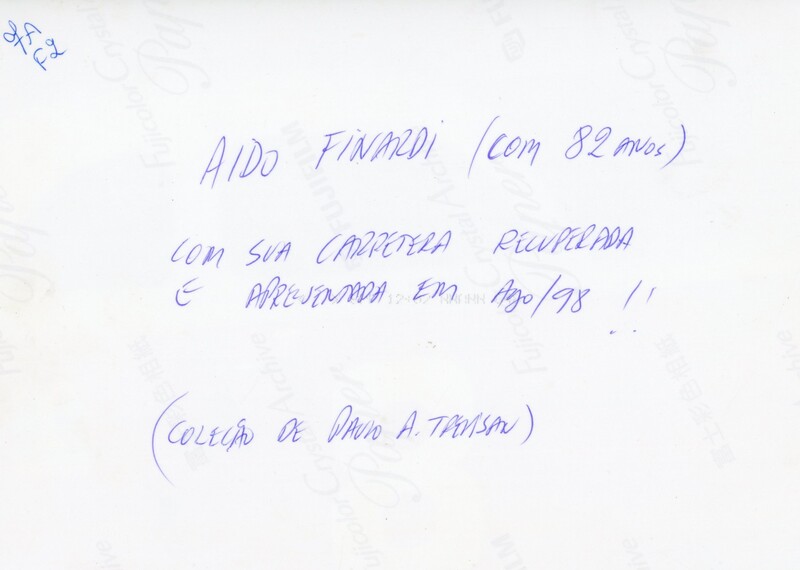 AIDO FINARDI (COM 82 ANOS)
COM SUA CARRETERA RECUPERADA
E APRESENTADA EM AGO/98 !!
(COLEÇÃO DE PAULO A. TREVISAN)
FUJIFILM
Fujicolor Crystal Archive Paper